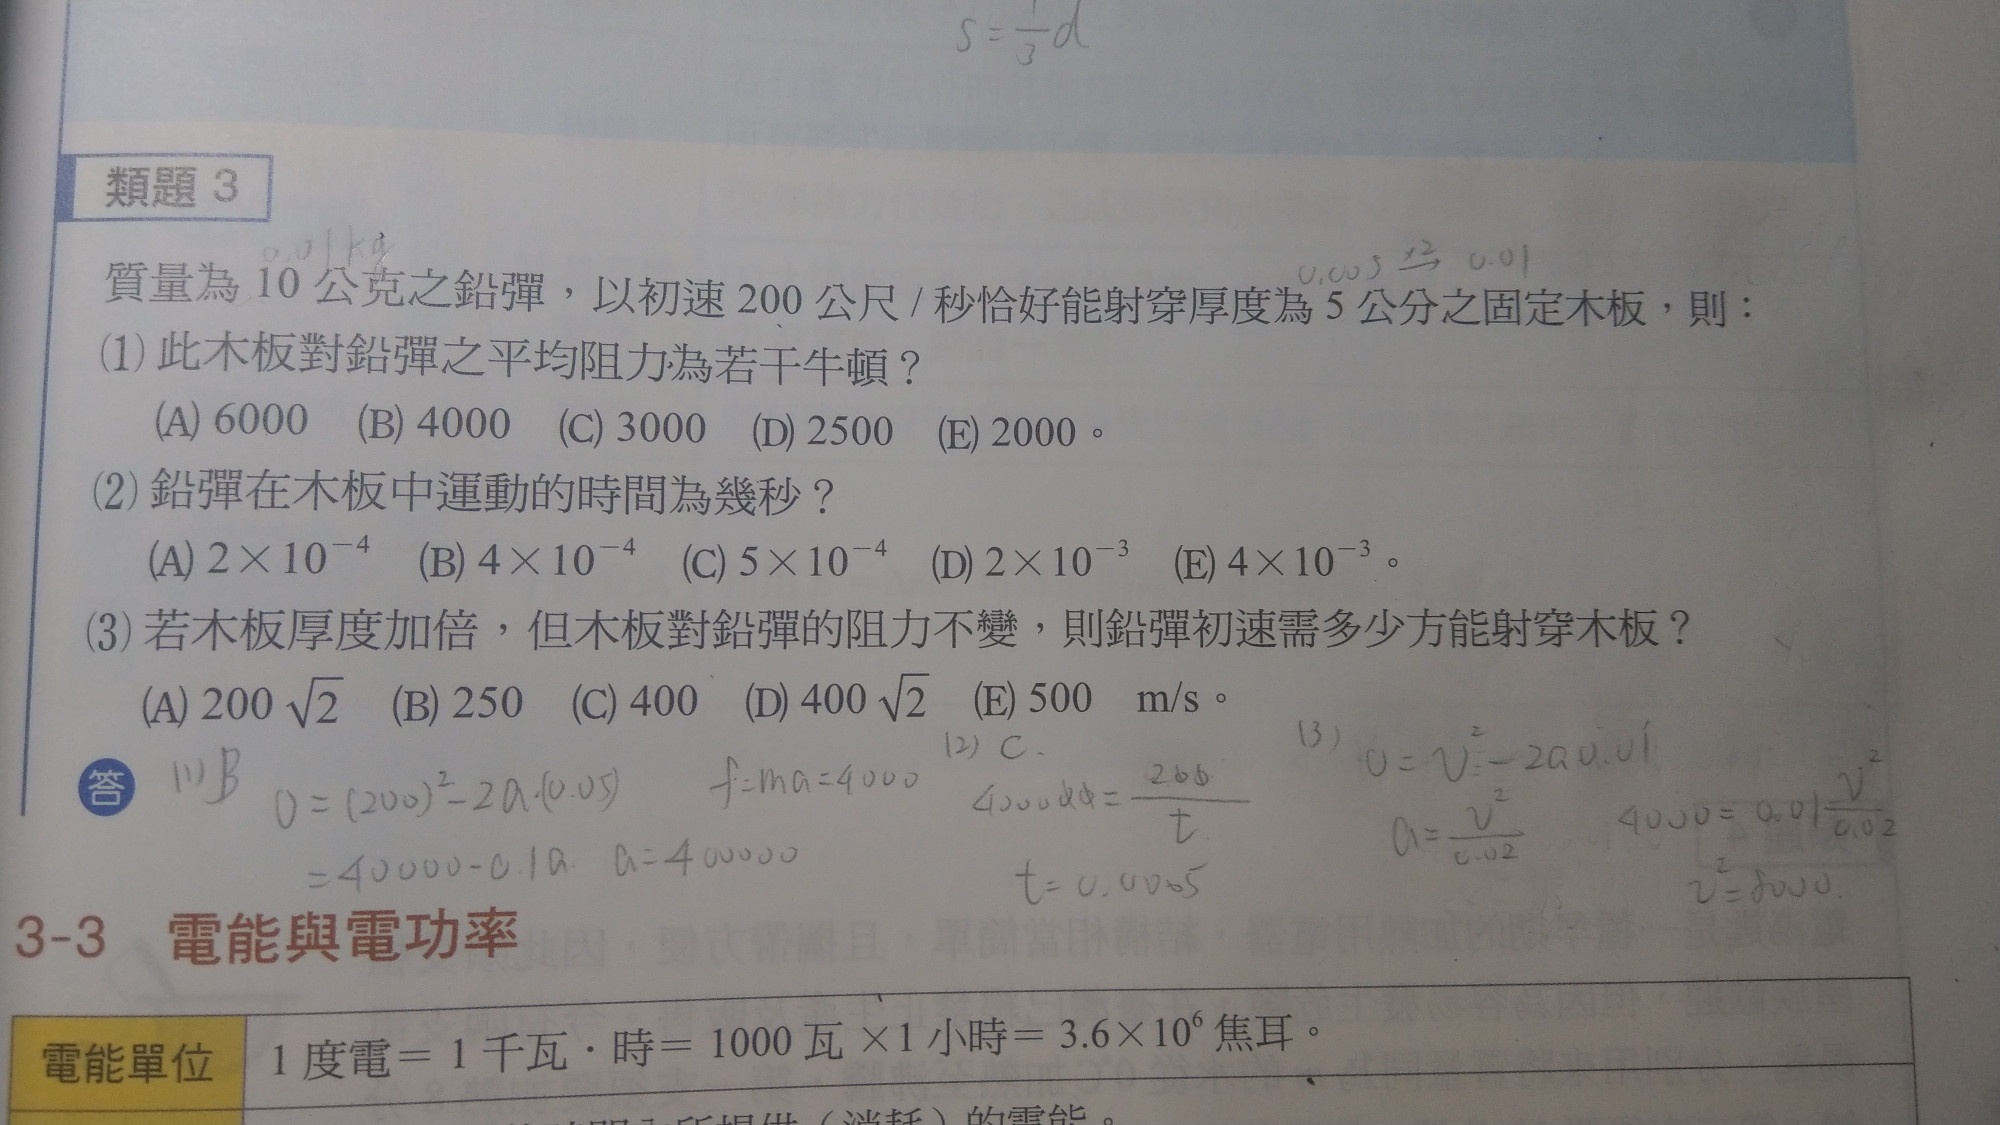 s = 1/3 d
類題 3
0.01kg
0.005 ×2→ 0.01
質量為 10 公克之鉛彈，以初速 200 公尺 / 秒恰好能射穿厚度為 5 公分之固定木板，則：
(1) 此木板對鉛彈之平均阻力為若干牛頓？
(A) 6000 (B) 4000 (C) 3000 (D) 2500 (E) 2000。
(2) 鉛彈在木板中運動的時間為幾秒？
(A) 2×10⁻⁴ (B) 4×10⁻⁴ (C) 5×10⁻⁴ (D) 2×10⁻³ (E) 4×10⁻³。
(3) 若木板厚度加倍，但木板對鉛彈的阻力不變，則鉛彈初速需多少方能射穿木板？
(A) 200√2 (B) 250 (C) 400 (D) 400√2 (E) 500 m/s。
答 (1) B
0 = (200)² - 2a·(0.05)
= 40000 - 0.1a a = 400000
f = ma = 4000
(2) C.
= 200/t
t = 0.0005
(3) 0 = v² - 2a0.01
a = v²/0.02
4000 = 0.01 v²/0.02
v² = 8000.
3-3 電能與電功率
電能單位
1 度電＝ 1 千瓦．時＝ 1000 瓦 ×1 小時＝ 3.6×10⁶ 焦耳。
（消耗）的電能。